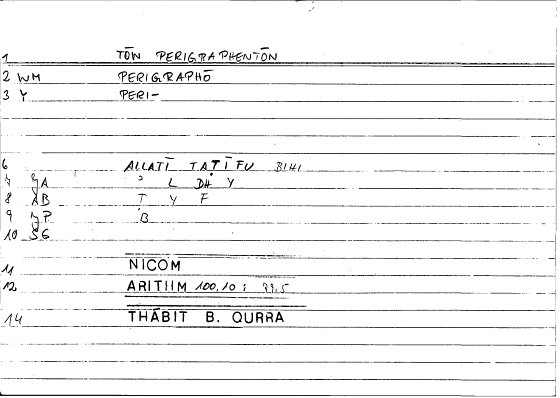 1 TŌN PERIGRAPHENTŌN
2 WM PERIGRAPHŌ
3 Y PERI-
6 ALLATĪ TATĪFU BIHI
7 JA ʾ L DH Y
8 AB T Y F
9 JP B
10 SG
11 NICOM
12 ARITHM 100,10; 99.5
14 THĀBIT B. QURRA